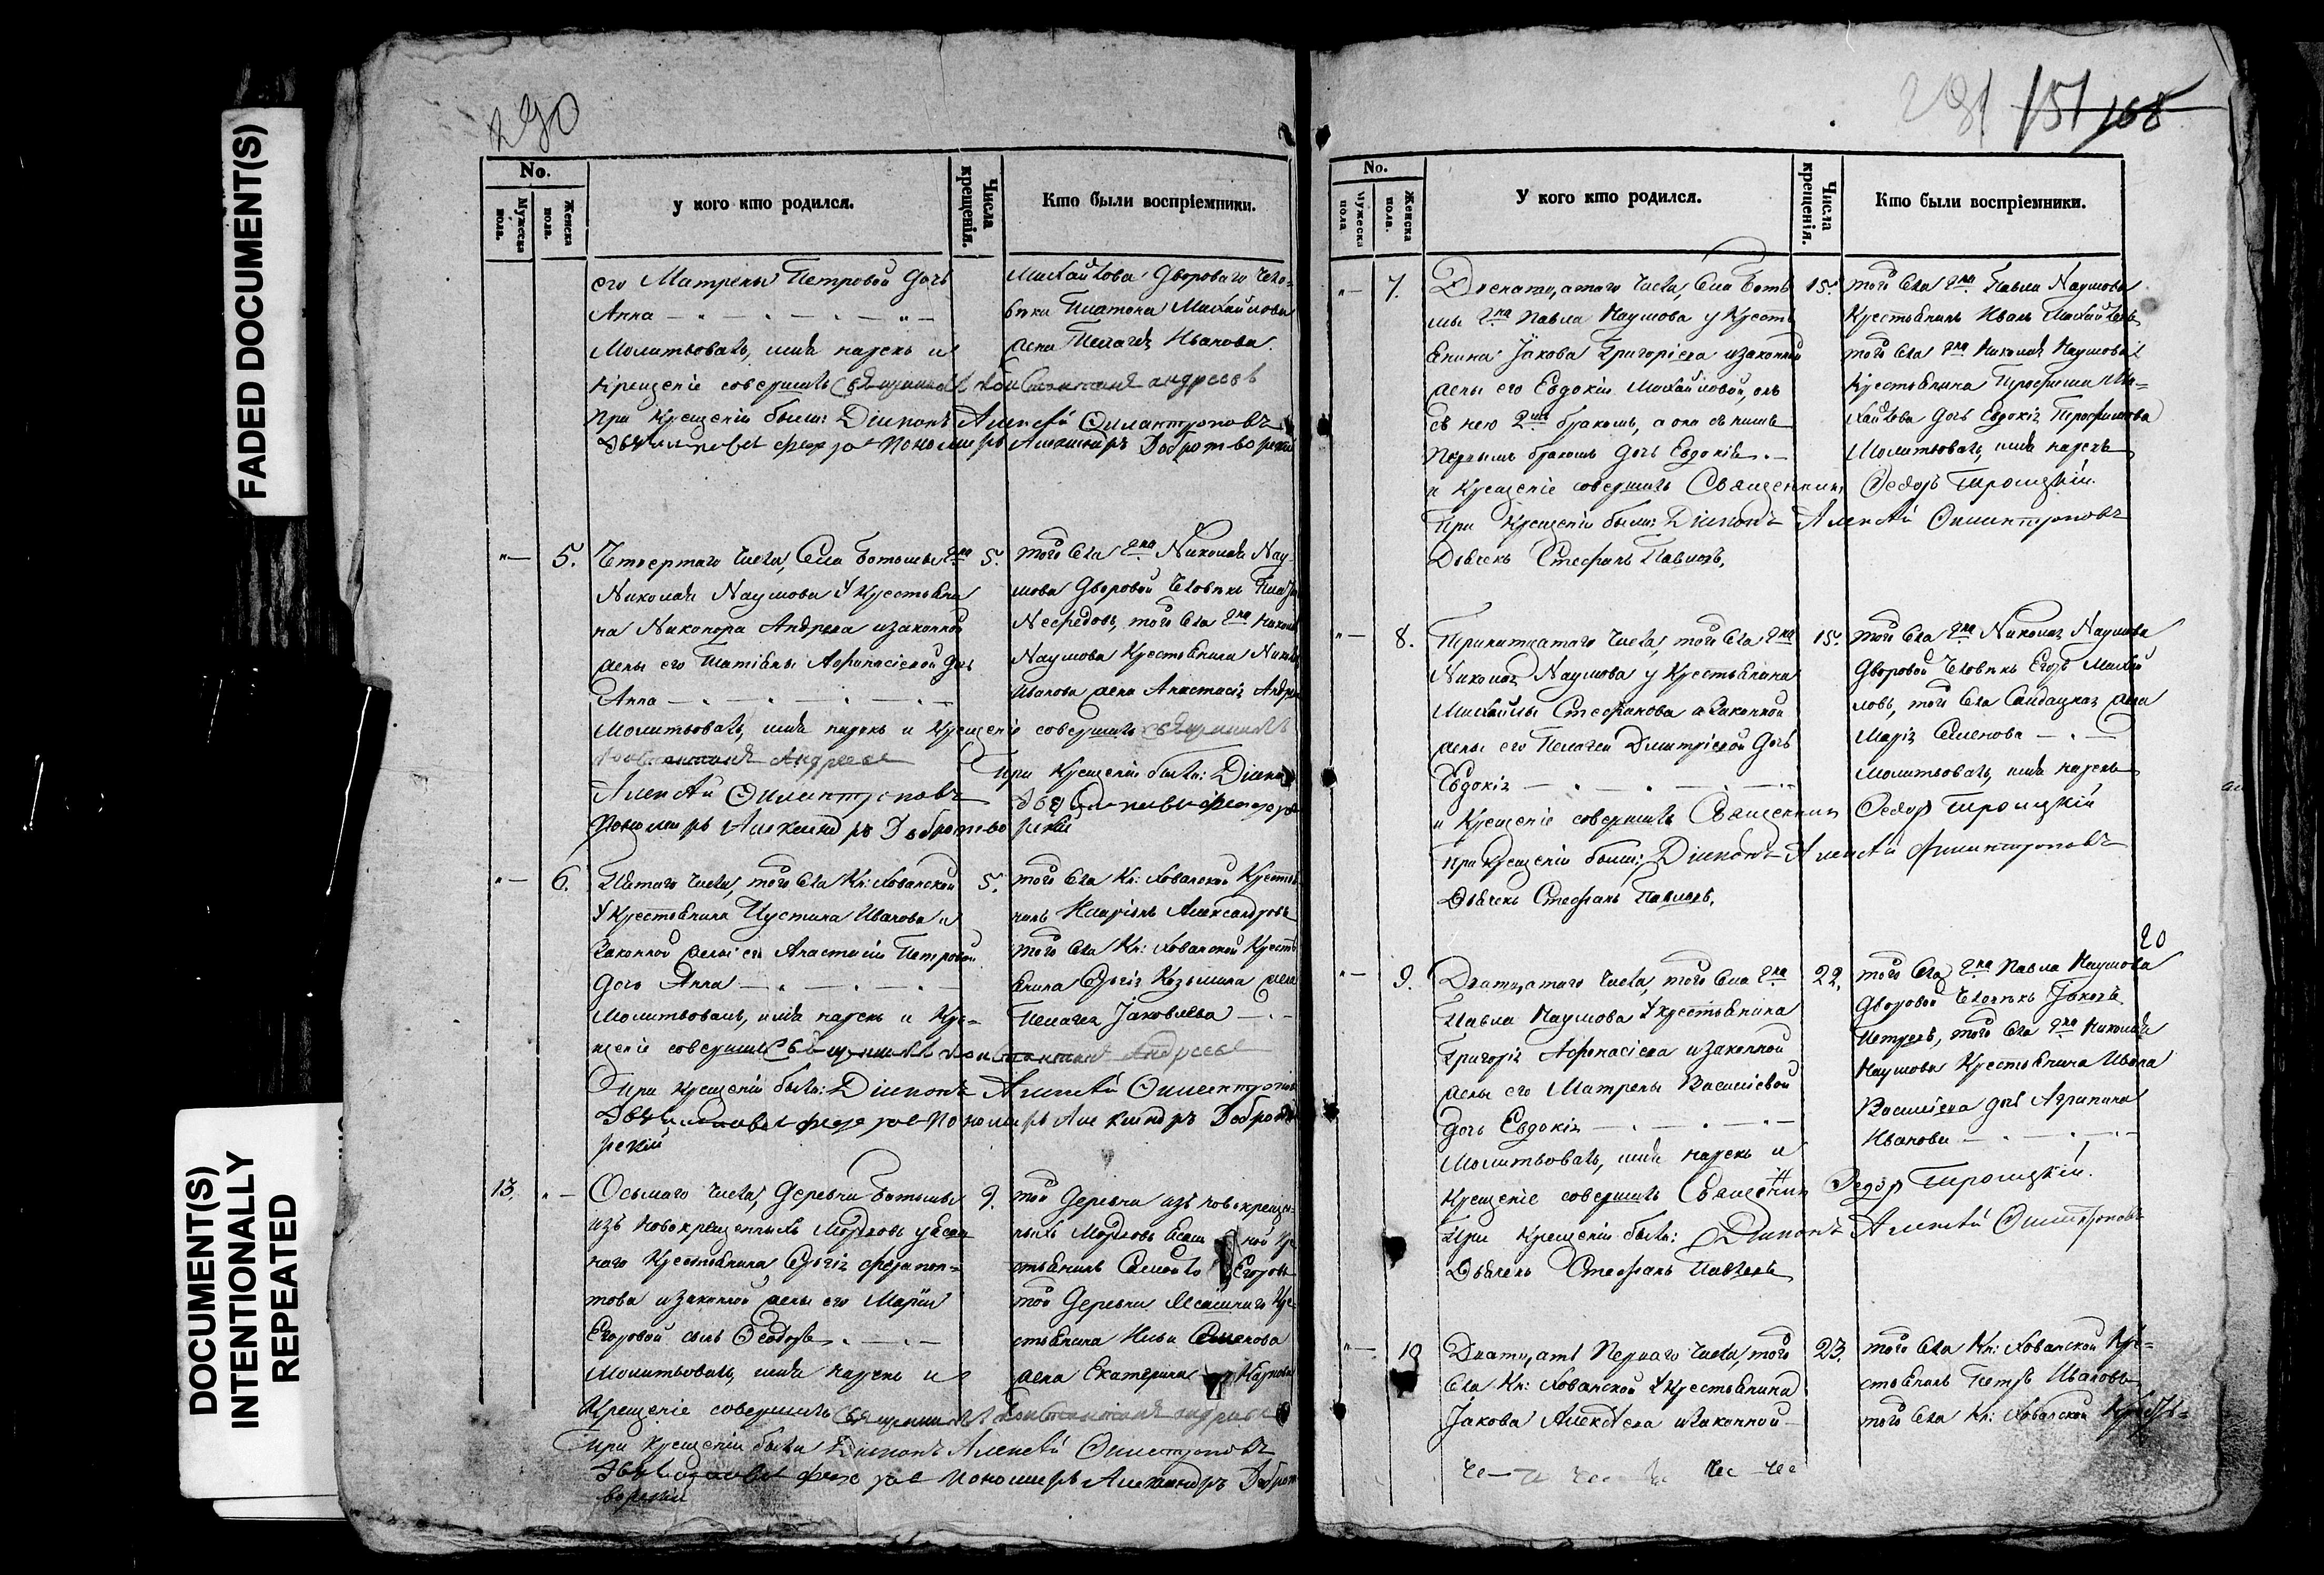 FADED DOCUMENT(S)
DOCUMENT(S)
INTENTIONALLY
REPEATED
290
No.
Мужеска пола.
Женска пола.
у кого кто родился.
Числа крещенія.
Кто были воспріемники.
его Матрены Петровой дочь
Анна
Молитвовалъ, имя нарекъ и
крещеніе совершилъ
При крещеніи были: Діаконъ Алексѣй Филантроповъ
Пономарь Александръ Добротворскій
Михайлова Двороваго чело-
вѣка Платона Михайлова
жена Пелагея Иванова.
5. Четвертаго числа, Села Ботьмы г-на
Николая Наумова у крестьяни
на Никонора Андреева и законной
жены его Татіяны Афонасіевой дочь
Анна
Молитвовалъ, имя нарекъ и крещеніе совершилъ
Андреевъ
При крещеніи были: Діаконъ
Алексѣй Филантроповъ
Пономарь Александръ Добротво
рскій
5. того села г-на Николая Нау-
мова Дворовой человѣкъ
Нефедовъ, того села г-на Никол
Наумова крестьянина
Иванова жена Анастасія Андре
6. Пятаго числа, того села Кн: Хованской
у крестьянина Іустина Иванова и
законной жены его Анастасіи Петровой
дочь Анна
Молитвовалъ, имя нарекъ и кре-
щеніе совершилъ Андреевъ
При крещеніи были: Діаконъ Алексѣй Филантропов
Пономарь Александръ Добротво
рскій
5. того села Кн: Хованской крестья
нинъ Иларіонъ Александровъ
того села Кн: Хованской кресть
янина Сергія Козьмина жена
Пелагея Яковлева
13. Осьмаго числа, деревни Ботьмы
изъ новокрещенныхъ Мордовъ у
наго крестьянина Сергія Ферапон-
това и законной жены его Маріи
Егоровой сынъ Ѳеодоръ
Молитвовалъ, имя нарекъ и
Крещеніе совершилъ
При крещеніи были Діаконъ Алексѣй Филантроповъ
Пономарь Александръ Доброт
ворскій
9. той деревни изъ новокрещен-
ныхъ Мордовъ кре
стьянинъ Егоровъ
той деревни Ясашнаго кре-
стьянина Ильи Семенова
жена Екатерина Карпова
281 151 168
No.
Мужеска пола.
Женска пола.
У кого кто родился.
Числа крещенія.
Кто были воспріемники.
7. числа, Села Боть
мы г-на Павла Наумова у кресть
янина Якова Григоріева и законной
жены его Евдокіи Михайловой, онъ
съ нею 2-мъ бракомъ, а она съ нимъ
Первымъ бракомъ дочь Евдокія.
и крещеніе совершилъ Священникъ Ѳеодоръ Троицкій.
При крещеніи были: Діаконъ Алексѣй Филантроповъ
Дьячекъ Стефанъ Павловъ.
15. того села г-на Павла Наумова
крестьянинъ Иванъ
того села г-на Николая Наумова
крестьянина Трофима Ми-
хайлова дочь Евдокія Трофимова
Молитвовалъ, имя нарекъ
8. Тринатцатаго числа, того села г-на
Николая Наумова у крестьянина
Михайлы Стефанова и законной
жены его Пелагеи Димитріевой дочь
Евдокія
и крещеніе совершилъ Священникъ Ѳеодоръ Троицкій
При крещеніи были: Діаконъ Алексѣй Филантроповъ
Дьячекъ Стефанъ Павловъ.
15. того села г-на Николая Наумова
Дворовой человѣкъ Егоръ Михай
ловъ, того села Салдацкая жена
Марія Семенова
Молитвовалъ, имя нарекъ
20
9. Дватцатаго числа, того села г-на
Павла Наумова у крестьянина
Григорія Афонасіева и законной
жены его Матрены Василіевой
дочь Евдокія
Молитвовалъ, имя нарекъ и
крещеніе совершилъ Священникъ Ѳедоръ Троицкій.
При крещеніи были: Діаконъ Алексѣй Филантроповъ
Дьячекъ Стефанъ Павловъ
22. того села г-на Павла Наумова
Дворовой человѣкъ Яковъ
Петровъ, того села г-на Николая
Наумова крестьянина Ивана
Василіева дочь Агрипина
Иванова
10 Дватцать Перваго числа, того
села Кн: Хованской у крестьянина
Якова Алексѣева и законной
23. того села Кн: Хованской кре-
стьянинъ Петръ Ивановъ
того села Кн: Хованской